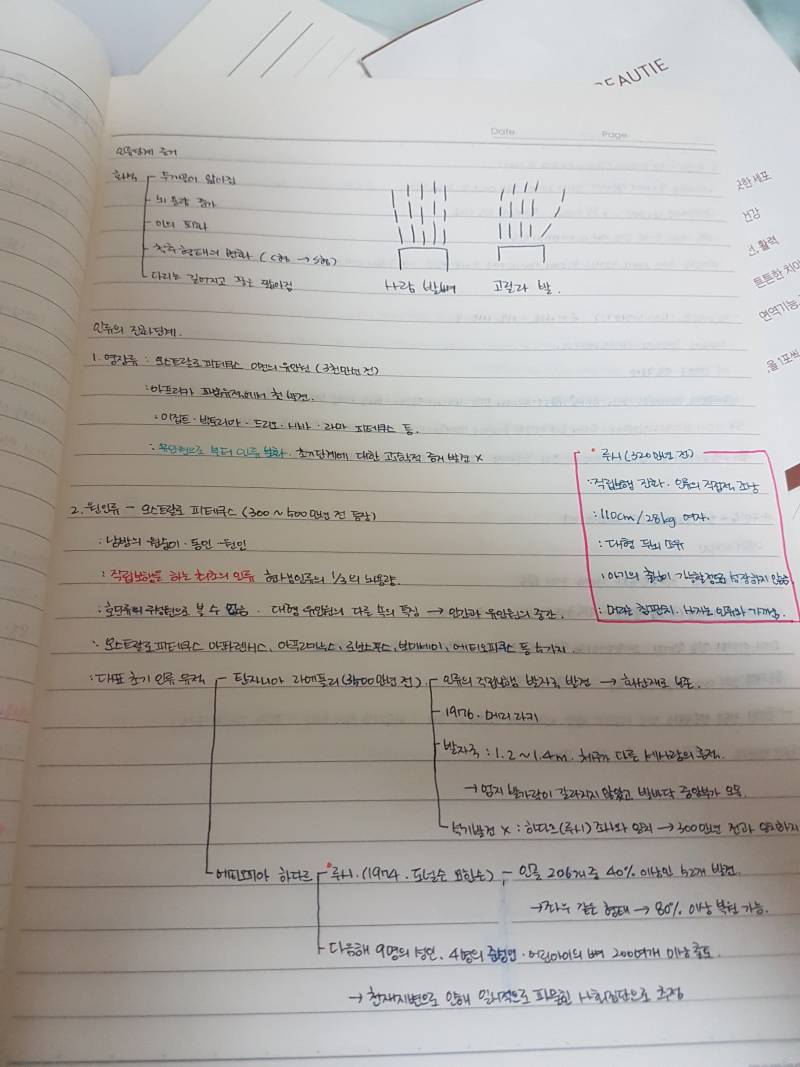 BEAUTIE
Date
Page
인류단계 증거
화석
두개골이 얇아짐
뇌 용량 증가
이의 퇴화
척추 형태의 변화 (C형 → S형)
다리는 길어지고 팔은 짧아짐
사람 발뼈
고릴라 발
인류의 진화단계.
1. 영장류 : 오스트랄로 피테쿠스 이전의 유인원 (3천만년 전)
: 아프리카 파윰유적에서 첫 발견.
: 이집트 · 빅토리아 · 드리오 · 시바 · 라마 피테쿠스 등.
: 유인원으로 부터 인류 진화. 초기단계에 대한 고고학적 증거 발견 x
루시 (320만년 전)
: 직립보행 진화. 인류의 직접적 조상
: 110cm / 28kg 여자.
: 대형 두뇌
: 아기의 출생이 가능할정도로 성장하지 않음
: 머리는 침팬치. 하지는 인류와 가까움.
2. 원인류 - 오스트랄로 피테쿠스 (300 ~ 500만년 전 등장)
: 남방의 원숭이 ·
: 직립보행을 하는 최초의 인류 현생인류의 1/3의 뇌용량.
볼 수 없음. 대형 유인원의 다른 속의 특징 → 인간과 유인원의 중간.
: 오스트랄로피테쿠스 아파렌시스, 아프리카누스, 로부스투스, 보이세이, 에티오피쿠스 등
: 대표 초기 인류 유적
탄자니아 라에톨리
인류의 직립보행 발자국 발견 → 화산재로 보존.
1976. 메리 리키
발자국 : 1.2 ~ 1.4m. 체구가 다른 세사람의 흔적.
→ 엄지 발가락이 갈라지지 않았고 발바닥 중앙부가 오목.
석기발견 x : 하다르 (루시) 조사와 일치 → 300만년 전과 일치하지
에티오피아 하다르
루시. (1974. 도널드 요한슨) - 인골 206개중 40% 이상인 52개 발견.
→ 좌우 같은 형태 → 80% 이상 복원 가능.
다음해 9명의 성인, 4명의 · 어린아이의 뼈 200여개 이상 출토
→ 천재지변으로 인해 일시적으로 파묻힌 사회집단으로 추정
건강
선, 활력
튼튼한 치아
면역기능